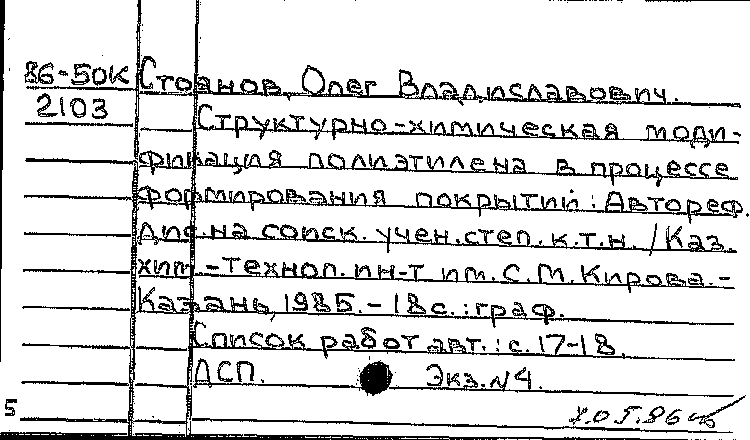 86-50К Стоянов, Олег Владиславович.
2103
Структурно-химическая моди-
фикация полиэтилена в процессе
формирования покрытий : Автореф.
дис. на соиск. учен. степ. к.т.н. / Каз.
хим.-технол. ин-т им. С.М. Кирова. -
Казань, 1985. - 18 с. : граф.
Список работ авт.: с. 17-18.
ДСП. Экз. № 4.
5